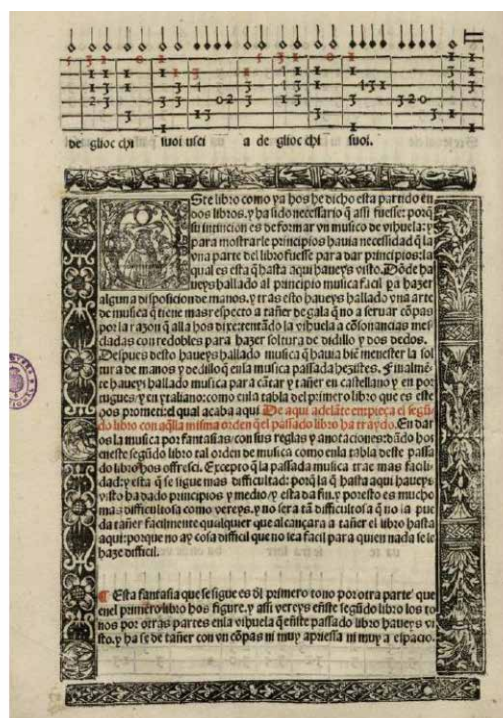 de glioc chi suoi usci a de glioc chi suoi.
Este libro como ya hos he dicho esta partido en
dos libros. y ha sido necessario q̃ assi fuesse: porq̃
su intincion es de formar vn musico de vihuela: y
para mostrarle principios hauia necessidad q̃ la
vna parte del libro fuesse para dar principios: la
qual es esta q̃ hasta aqui haueys visto. Dõde ha
ueys hallado al principio musica facil pa hazer
alguna disposicion de manos. y tras esto haueys hallado vna arte
de musica q̃ tiene mas respecto a tañer de gala q̃ no a seruar cõpas
por la razon q̃ alla hos dixe: tentãdo la vihuela a cõsonancias mez
cladas con redobles para hazer soltura de didillo y dos dedos.
Despues desto haueys hallado musica q̃ hauia biẽ menester la sol
tura de manos y dedillo q̃ enla musica passada hezistes. Finalmẽ
te haueys hallado musica para cãtar y tañer en castellano y en por
tugues/ y en ytaliano: como enla tabla del primero libro que es este
hos prometi: el qual acaba aqui. De aqui adelãte empieça el segũ
do libro con aq̃lla misma orden q̃el passado libro ha traydo. En dar
os la musica por fantasias/ con sus reglas y anotaciones: dãdo hos
eneste segũdo libro tal orden de musica como enla tabla deste passa
do libro hos offresci. Excepto q̃ la passada musica trae mas facili
dad: y esta q̃ se sigue mas difficultad: porq̃ la q̃ hasta aqui haueys
visto ha dado principios y medio/ y esta da fin. y por esto es mucho
mas difficultosa como vereys. y no sera tã difficultosa q̃ no la pue
da tañer facilmente qualquier que alcançara a tañer el libro hasta
aqui: porque no ay cosa dificil que no sea facil para quien nada se le
haze dificil.
¶ Esta fantasia que se sigue es dl primero tono por otra parte que
enel primero libro hos figure. y assi vereys eñste segũdo libro los to
nos por otras partes enla vihuela q̃ eñste passado libro haueys vi
sto. y ha se de tañer con vn cõpas ni muy apriessa ni muy a espacio.